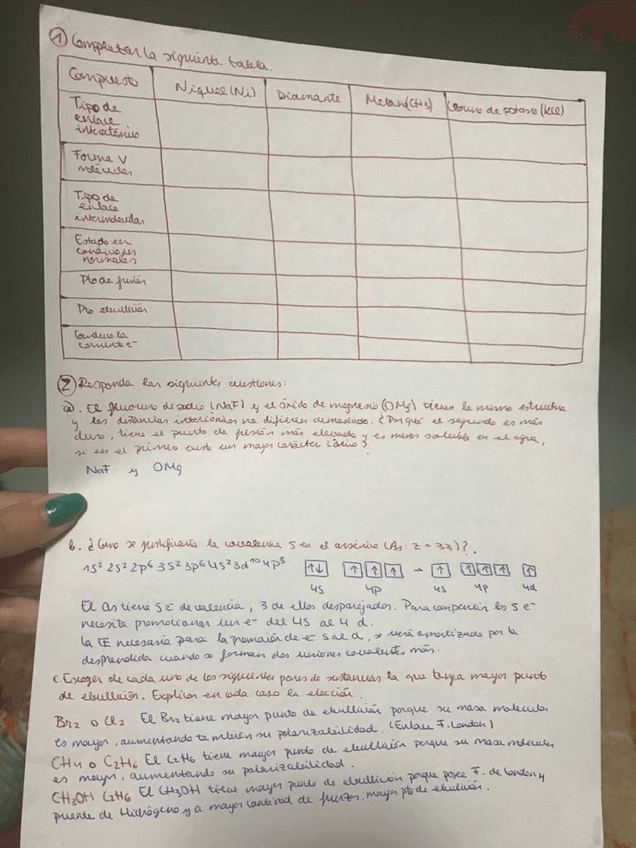 ① Completar la siguiente tabla.
Compuesto Niquel (Ni) Diamante Metano (CH₄) Cloruro de potasio (KCl)
Tipo de
enlace
interatómico
Forma
molecular
Tipo de
enlace
intermolecular
Estado en
condiciones
normales
Pto de fusión
Pto ebullición
Conduce la
corriente e⁻
② Responda las siguientes cuestiones:
a. El fluoruro de sodio (NaF) y el óxido de magnesio (OMg) tienen la misma estructura
y las distancias interiónicas no difieren demasiado. ¿Por qué el segundo es más
duro, tiene el punto de fusión más elevado y es menos soluble en el agua,
si en el primero existe un mayor carácter iónico?
NaF y OMg
b. ¿Cómo se justificaría la covalencia 5 en el arsénico (As: Z = 33)?.
1s² 2s² 2p⁶ 3s² 3p⁶ 4s² 3d¹⁰ 4p³ ↑↓ ↑ ↑ ↑ → ↑ ↑ ↑ ↑ ↑
4s 4p 4s 4p 4d
El As tiene 5 e⁻ de valencia, 3 de ellos desparejados. Para compartir los 5 e⁻
necesita promocionar un e⁻ del 4s al 4d.
La E necesaria para la promoción de e⁻ s al d, se verá amortizada por la
desprendida cuando se forman dos uniones covalentes más.
c. Escoger de cada uno de los siguientes pares de sustancias la que tenga mayor punto
de ebullición. Explica en cada caso la elección.
Br₂ o Cl₂ El Br₂ tiene mayor punto de ebullición porque su masa molecular
es mayor, aumentando también su polarizabilidad. (Enlace F. London)
CH₄ o C₂H₆ El C₂H₆ tiene mayor punto de ebullición porque su masa molecular
es mayor, aumentando su polarizabilidad.
CH₃OH C₂H₆ El CH₃OH tiene mayor punto de ebullición porque posee F. de London y
puente de Hidrógeno y a mayor cantidad de fuerzas, mayor pto de ebullición.